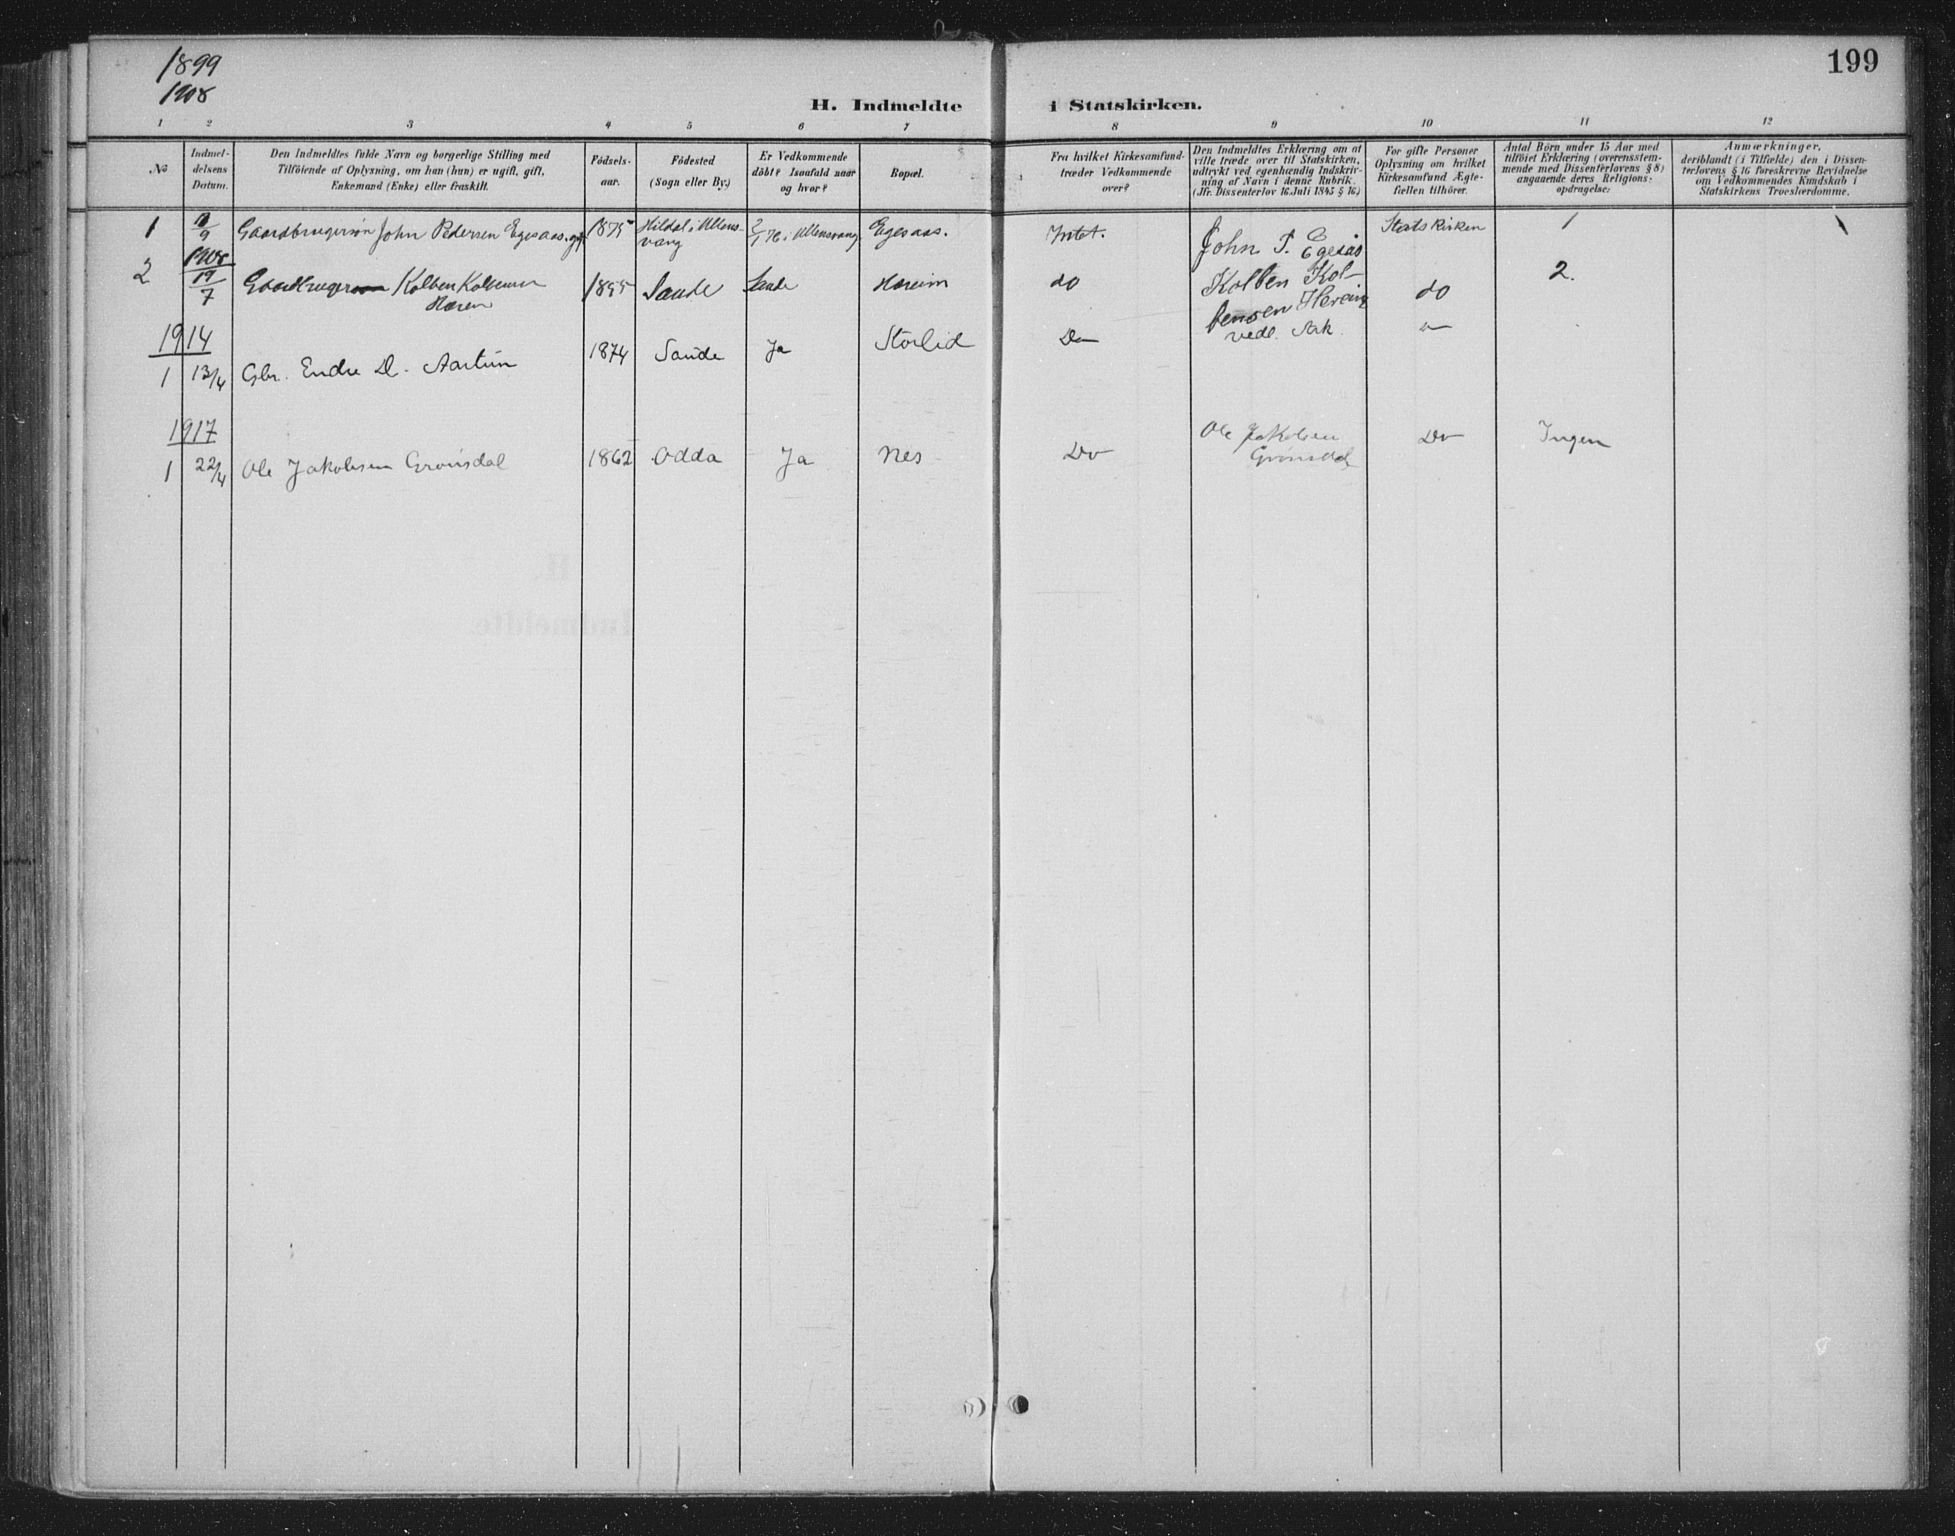 1899
1908
199
H. Indmeldte i Statskirken.
1 2 3 4 5 6 7 8 9 10 11 12
No
Indmel-
delsens
Datum.
Den Indmeldtes fulde Navn og borgerlige Stilling med
Tilföiende af Oplysning, om han (hun) er ugift, gift,
Enkemand (Enke) eller fraskilt.
Födsels-
aar.
Födested
(Sogn eller By.)
Er Vedkommende
döbt? Isaafald naar
og hvor?
Bopæl.
Fra hvilket Kirkesamfund
træder Vedkommende
over?
Den Indmeldtes Erklæring om at
ville træde over til Statskirken,
udtrykt ved egenhændig Indskriv-
ning af Navn i denne Rubrik.
(Jfr. Dissenterlov 16 Juli 1845 § 16)
For gifte Personer
Oplysning om hvilket
Kirkesamfund Ægte-
fællen tilhörer.
Antal Börn under 15 Aar med
tilföiet Erklæring (overensstem-
mende med Dissenterlovens § 8)
angaaende deres Religions-
opdragelse:
Anmærkninger,
deriblandt (i Tilfælde) den i Dissen-
terlovens § 16 foreskrevne Bevidnelse
om Vedkommendes Kundskab i
Statskirkens Troeslærdomme.
1 Gaardbrugersøn John Pedersen Egesaas. 1875 Hildal i Ullens-
vang i Ullensvang Egesaas. Intet. John P. Egesås Statskirken 1
1908
2 19/7 Kolben Kolbensen 1855 Sande Sande Hareim do Kolben Kol-
bensen do 2.
1914
1 13/4 Gbr. Endre D. Aartun 1874 Sande Ja Storlid Do vedl. Ark.
1917
1 22/4 Ole Jakobsen Grønsdal 1862 Odda Ja Nes Do Ole Jakobsen
Grønsdal Do Ingen